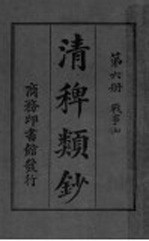 第六册 戰事上
清稗類鈔
商務印書館發行